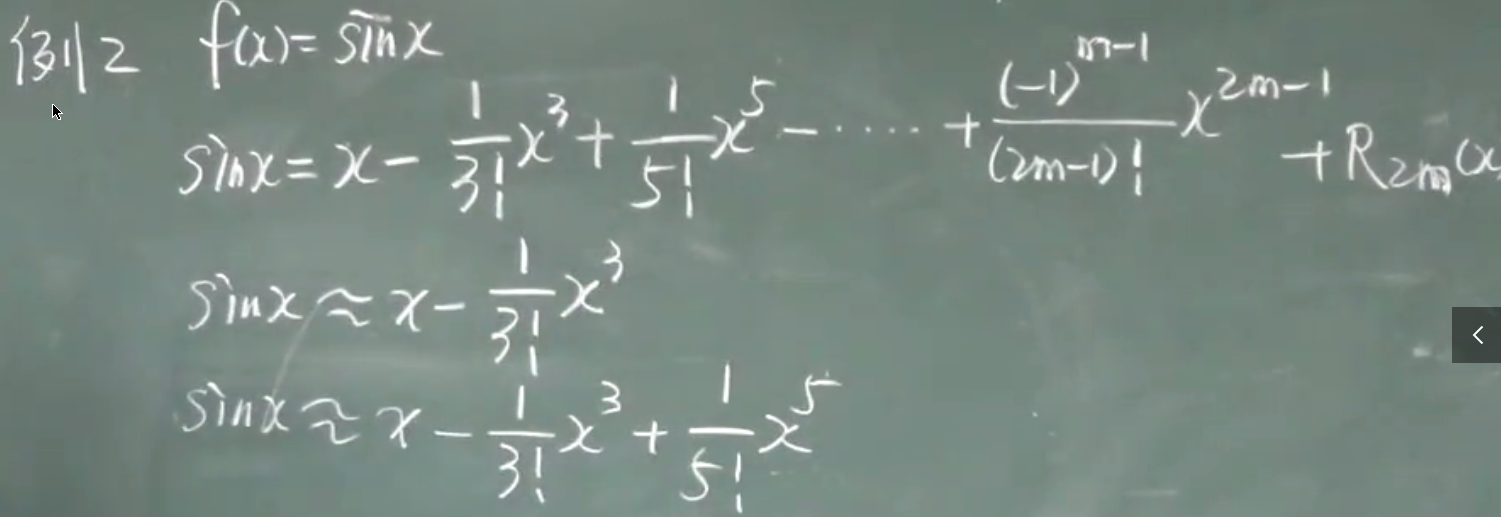 例2 f(x)= sinx
sinx = x - \frac{1}{3!}x^3 + \frac{1}{5!}x^5 - ······ + \frac{(-1)^{m-1}}{(2m-1)!}x^{2m-1} + R_{2m}(x
sinx ≈ x - \frac{1}{3!}x^3
sinx ≈ x - \frac{1}{3!}x^3 + \frac{1}{5!}x^5